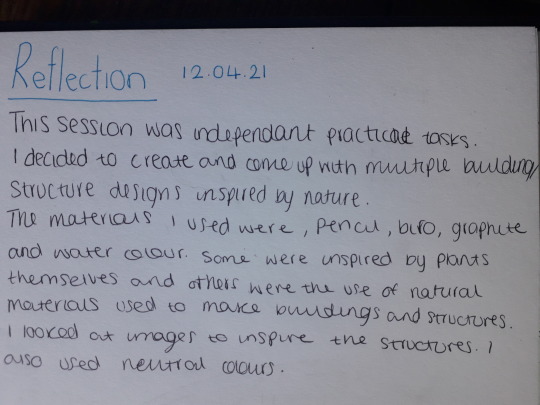 Reflection 12.04.21
This session was independant practical tasks.
I decided to create and come up with multiple building/
structure designs inspired by nature.
The materials I used were, pencil, biro, graphite
and water colour. Some were inspired by plants
themselves and others were the use of natural
materials used to make buildings and structures.
I looked at images to inspire the structures. I
also used neutral colours.